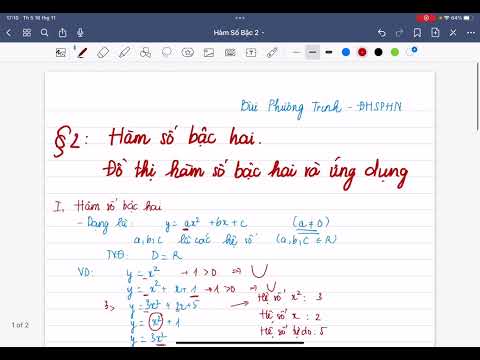 17:10 Th 5 16 thg 11
64%
Hàm Số Bậc 2
Bùi Phương Trinh - ĐHSPHN
§2: Hàm số bậc hai.
Đồ thị hàm số bậc hai và ứng dụng
I, Hàm số bậc hai
- Dạng là: y = ax² + bx + c (a ≠ 0)
a, b, c là các hệ số (a, b, c ∈ R)
TXĐ: D = R
VD: y = x² → 1 > 0 ⇒ ∪
y = x² + x + 1 → 1 > 0 ⇒ ∪
3> y = 3x² + 2x + 5 → Hệ số x²: 3
y = x² + 1 Hệ số x : 2
y = 3x² Hệ số tự do: 5
1 of 2